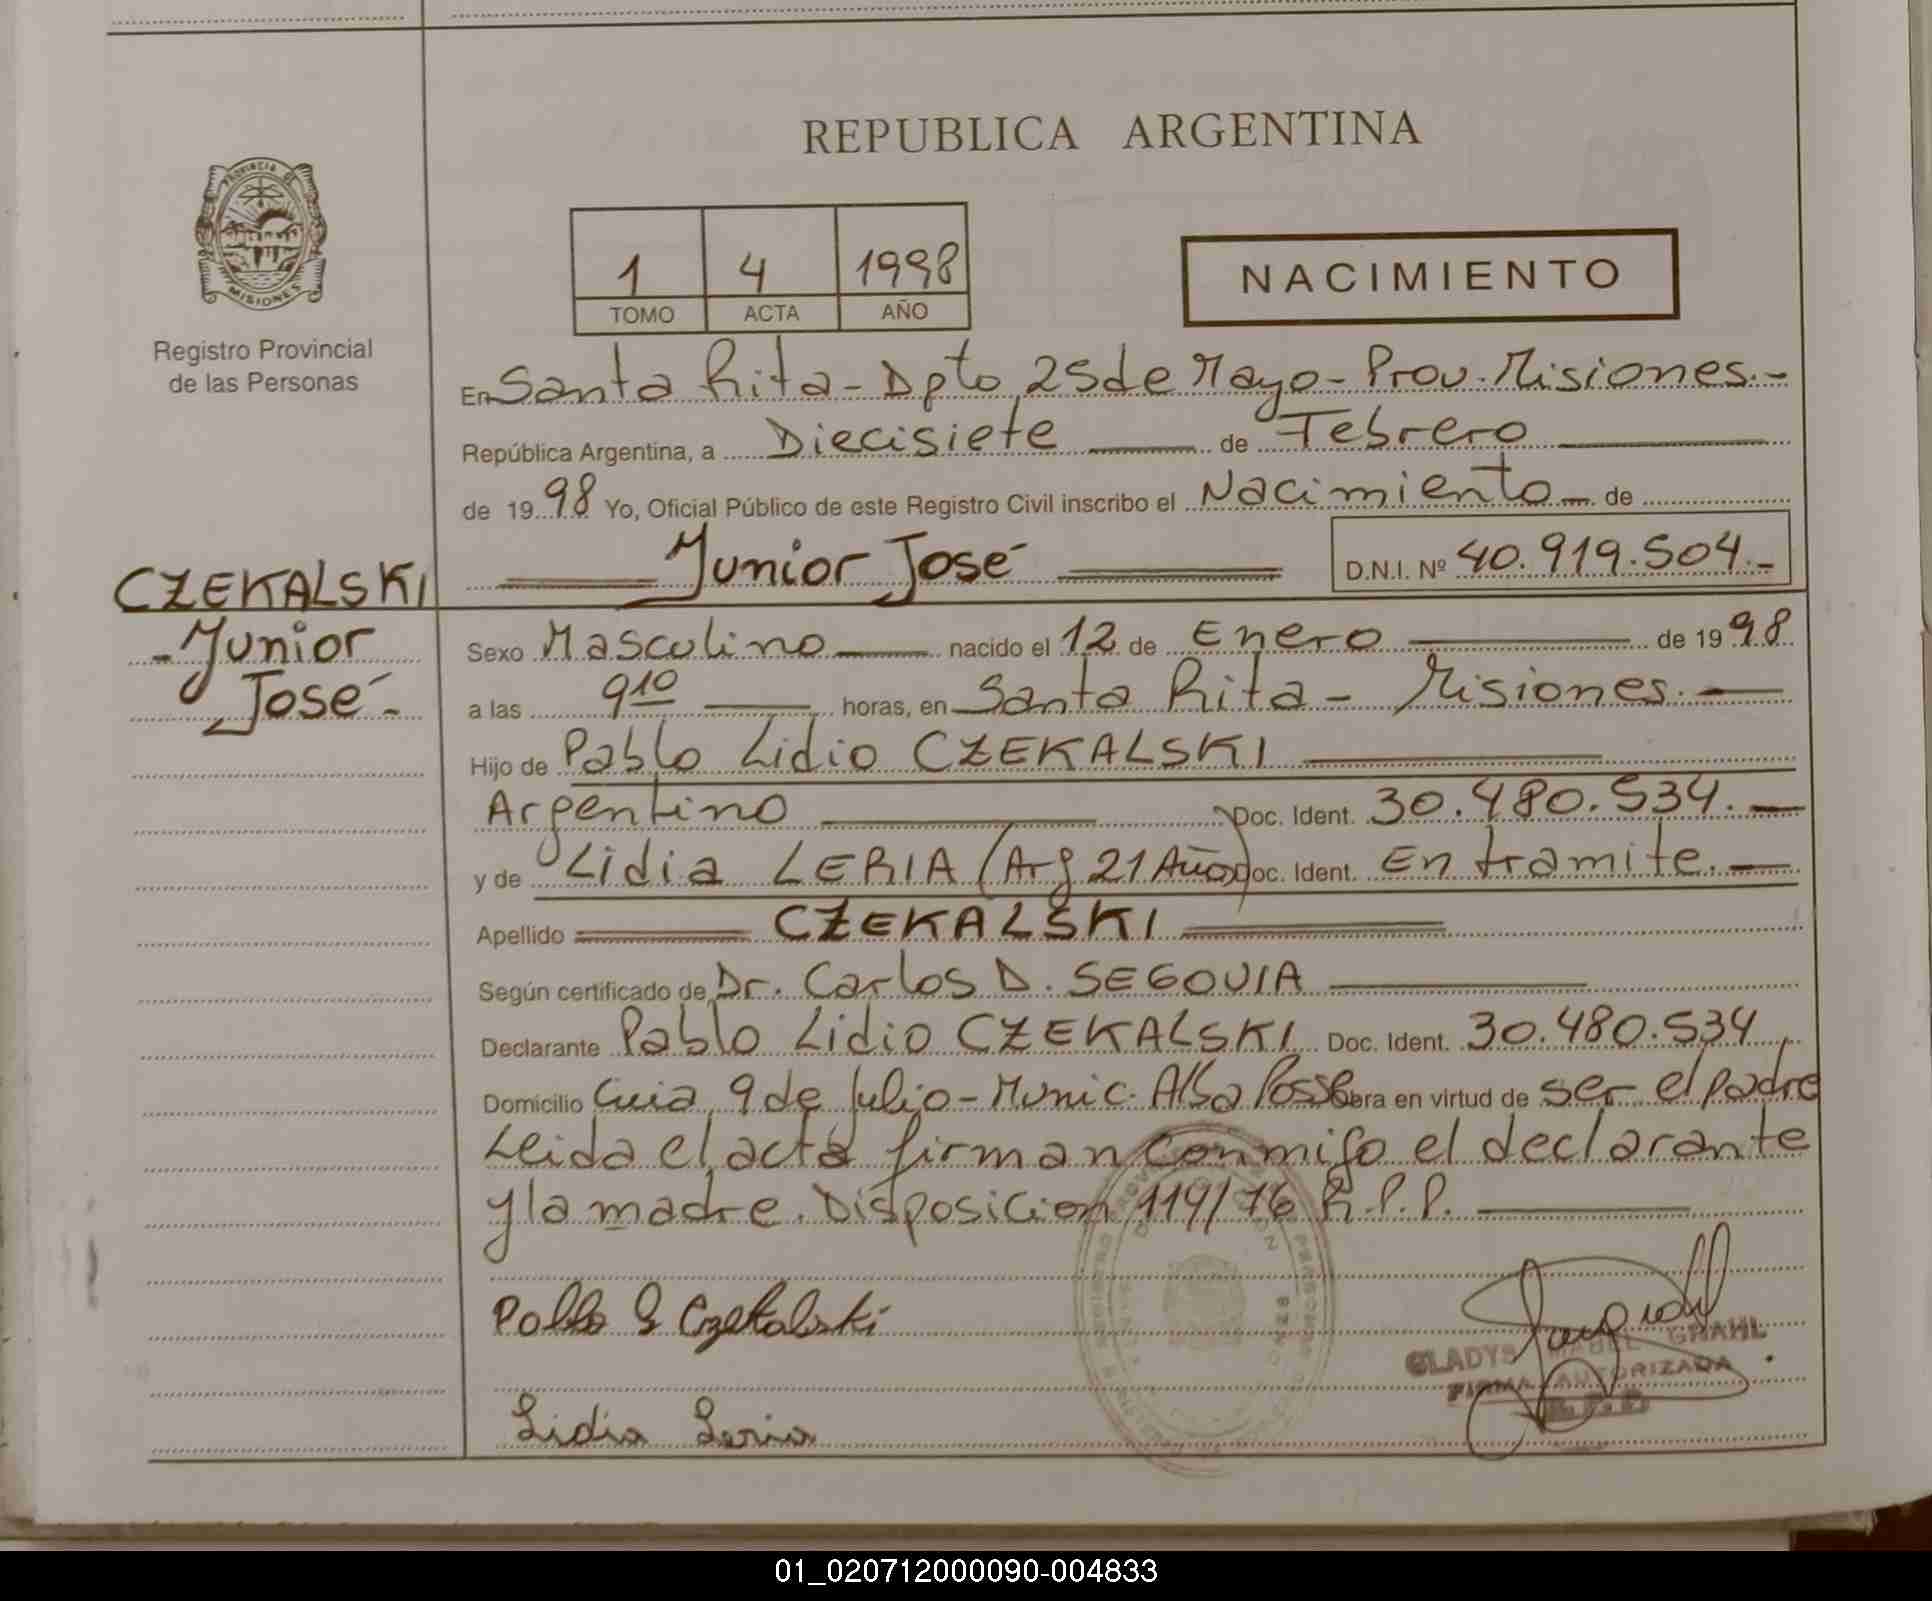 REPUBLICA ARGENTINA
PROVINCIA DE
MISIONES
Registro Provincial
de las Personas
1 4 1998
TOMO ACTA AÑO
NACIMIENTO
En Santa Rita - Dpto 25 de Mayo - Prov. Misiones.-
República Argentina, a Diecisiete de Febrero
de 1998 Yo, Oficial Público de este Registro Civil inscribo el Nacimiento de
Junior José D.N.I. Nº 40.919.504.-
CZEKALSKI
- Junior
José -
Sexo Masculino nacido el 12 de Enero de 1998
a las 9 10 horas, en Santa Rita - Misiones.
Hijo de Pablo Lidio CZEKALSKI
Argentino Doc. Ident. 30.480.534.
y de Lidia LERIA (Arg 21 Años) Doc. Ident. En tramite.
Apellido CZEKALSKI
Según certificado de Dr. Carlos D. SEGOVIA
Declarante Pablo Lidio CZEKALSKI Doc. Ident. 30.480.534
Domicilio 9 de Julio - Munic. Alba Posse Obra en virtud de ser el padre
Leida el acta firman conmigo el declarante
y la madre. Disposicion 119/76 R.P.P.
Pablo L Czekalski
GLADYS MABEL GRAHL
FIRMA AUTORIZADA
Lidia Leria
01_020712000090-004833